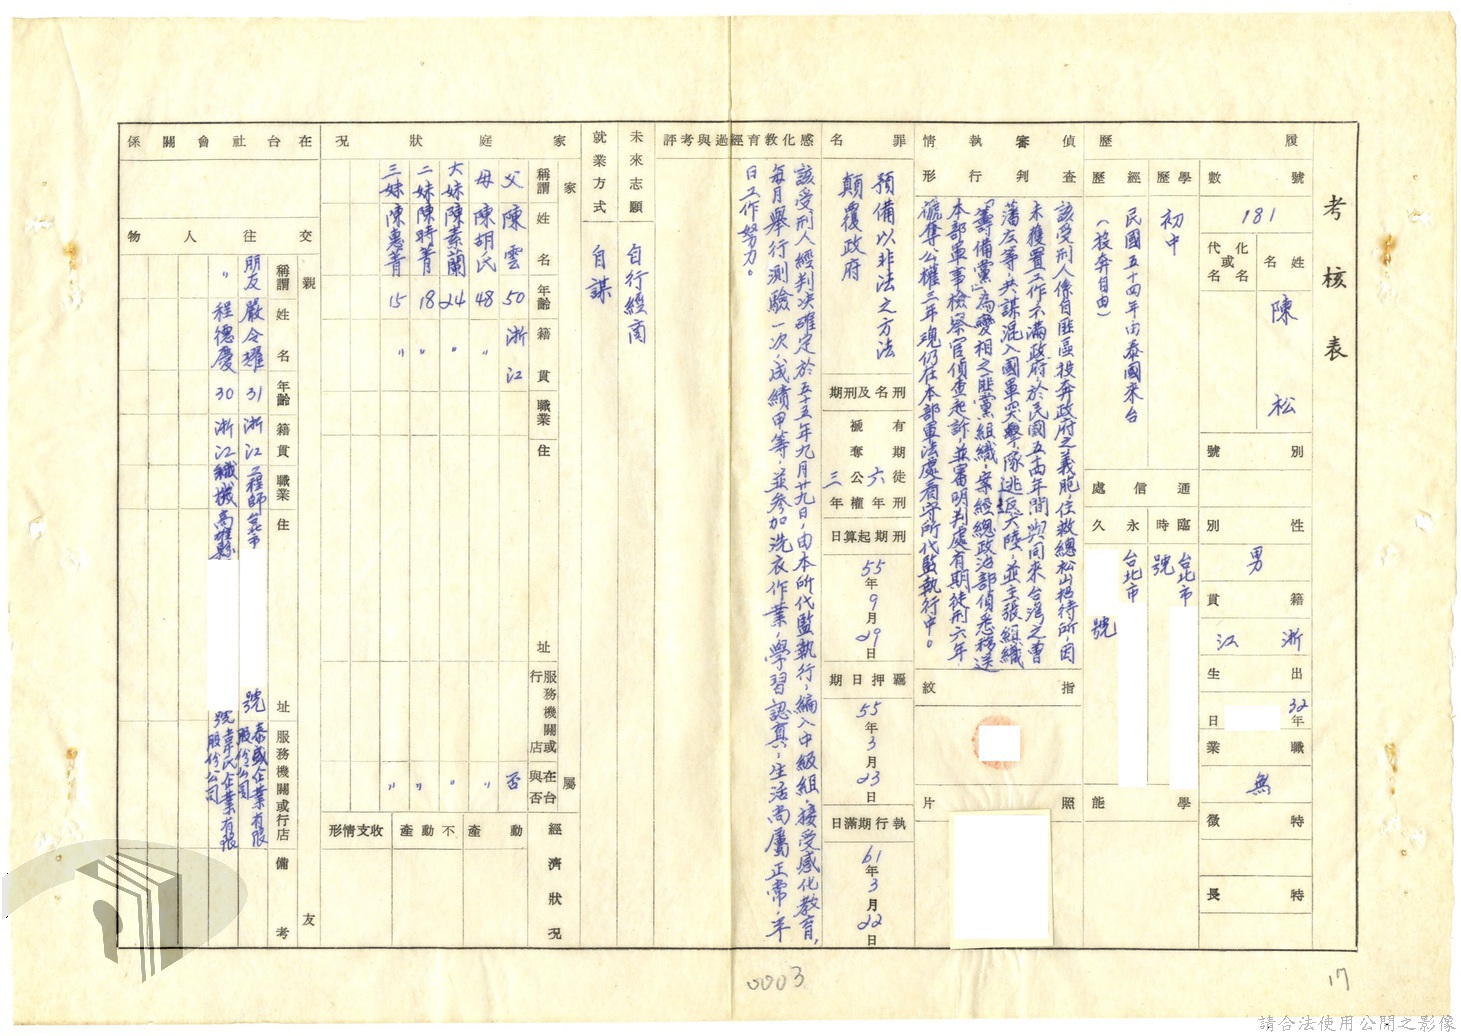 考核表
履歷
號數
181
化名或代名
姓名
陳松
別號
性別
男
籍貫
浙江
出生
32年
日
職業
無
特徵
特長
學歷
初中
經歷
民國五十四年由泰國來台
(投奔自由)
通信處
臨時
台北市
號
永久
台北市
號
學能
偵查審判執行情形
該受刑人係自匪區投奔政府之義胞,住救總松山招待所,因
未獲置工作不滿政府,於民國五十四年間與同來台灣之曹
藩左等,共謀混入國軍突擊隊逃返大陸,並主張組織
「籌備黨」為變相之匪黨組織,案經總政治部偵悉移送
本部軍事檢察官偵查起訴並審明判處有期徒刑六年,
褫奪公權三年現仍在本部軍法處看守所代監執行中。
指紋
照片
罪名
預備以非法之方法
顛覆政府
刑名及刑期
有期徒刑六年
褫奪公權三年
刑期起算日
55年9月29日
羈押日期
55年3月23日
執行期滿日
61年3月22日
感化教育經過與考評
該受刑人經判決確定於五十五年九月廿九日,由本所代監執行,編入中級組,接受感化教育,
每月舉行測驗一次,成績甲等,並參加洗衣作業,學習認真,生活尚屬正常,平
日工作努力。
未來志願
自行經商
就業方式
自謀
家庭狀況
家屬
稱謂 姓名 年齡 籍貫 職業 住址 服務機關或行店 在台與否
父 陳雲 50 浙江 否
母 陳胡氏 48 〃 〃
大妹 陳素蘭 24 〃 〃
二妹 陳時菁 18 〃 〃
三妹 陳惠菁 15 〃 〃
經濟狀況
動產
不動產
收支情形
在台社會關係
親友
交往人物
稱謂 姓名 年齡 籍貫 職業 住址 服務機關或行店 備考
朋友 嚴令耀 31 浙江 工程師 台北市 號 泰盛企業有限股份公司
〃 程德慶 30 浙江 織機 高雄縣 號 韋氏企業有限股份公司
0003
17
請合法使用公開之影像